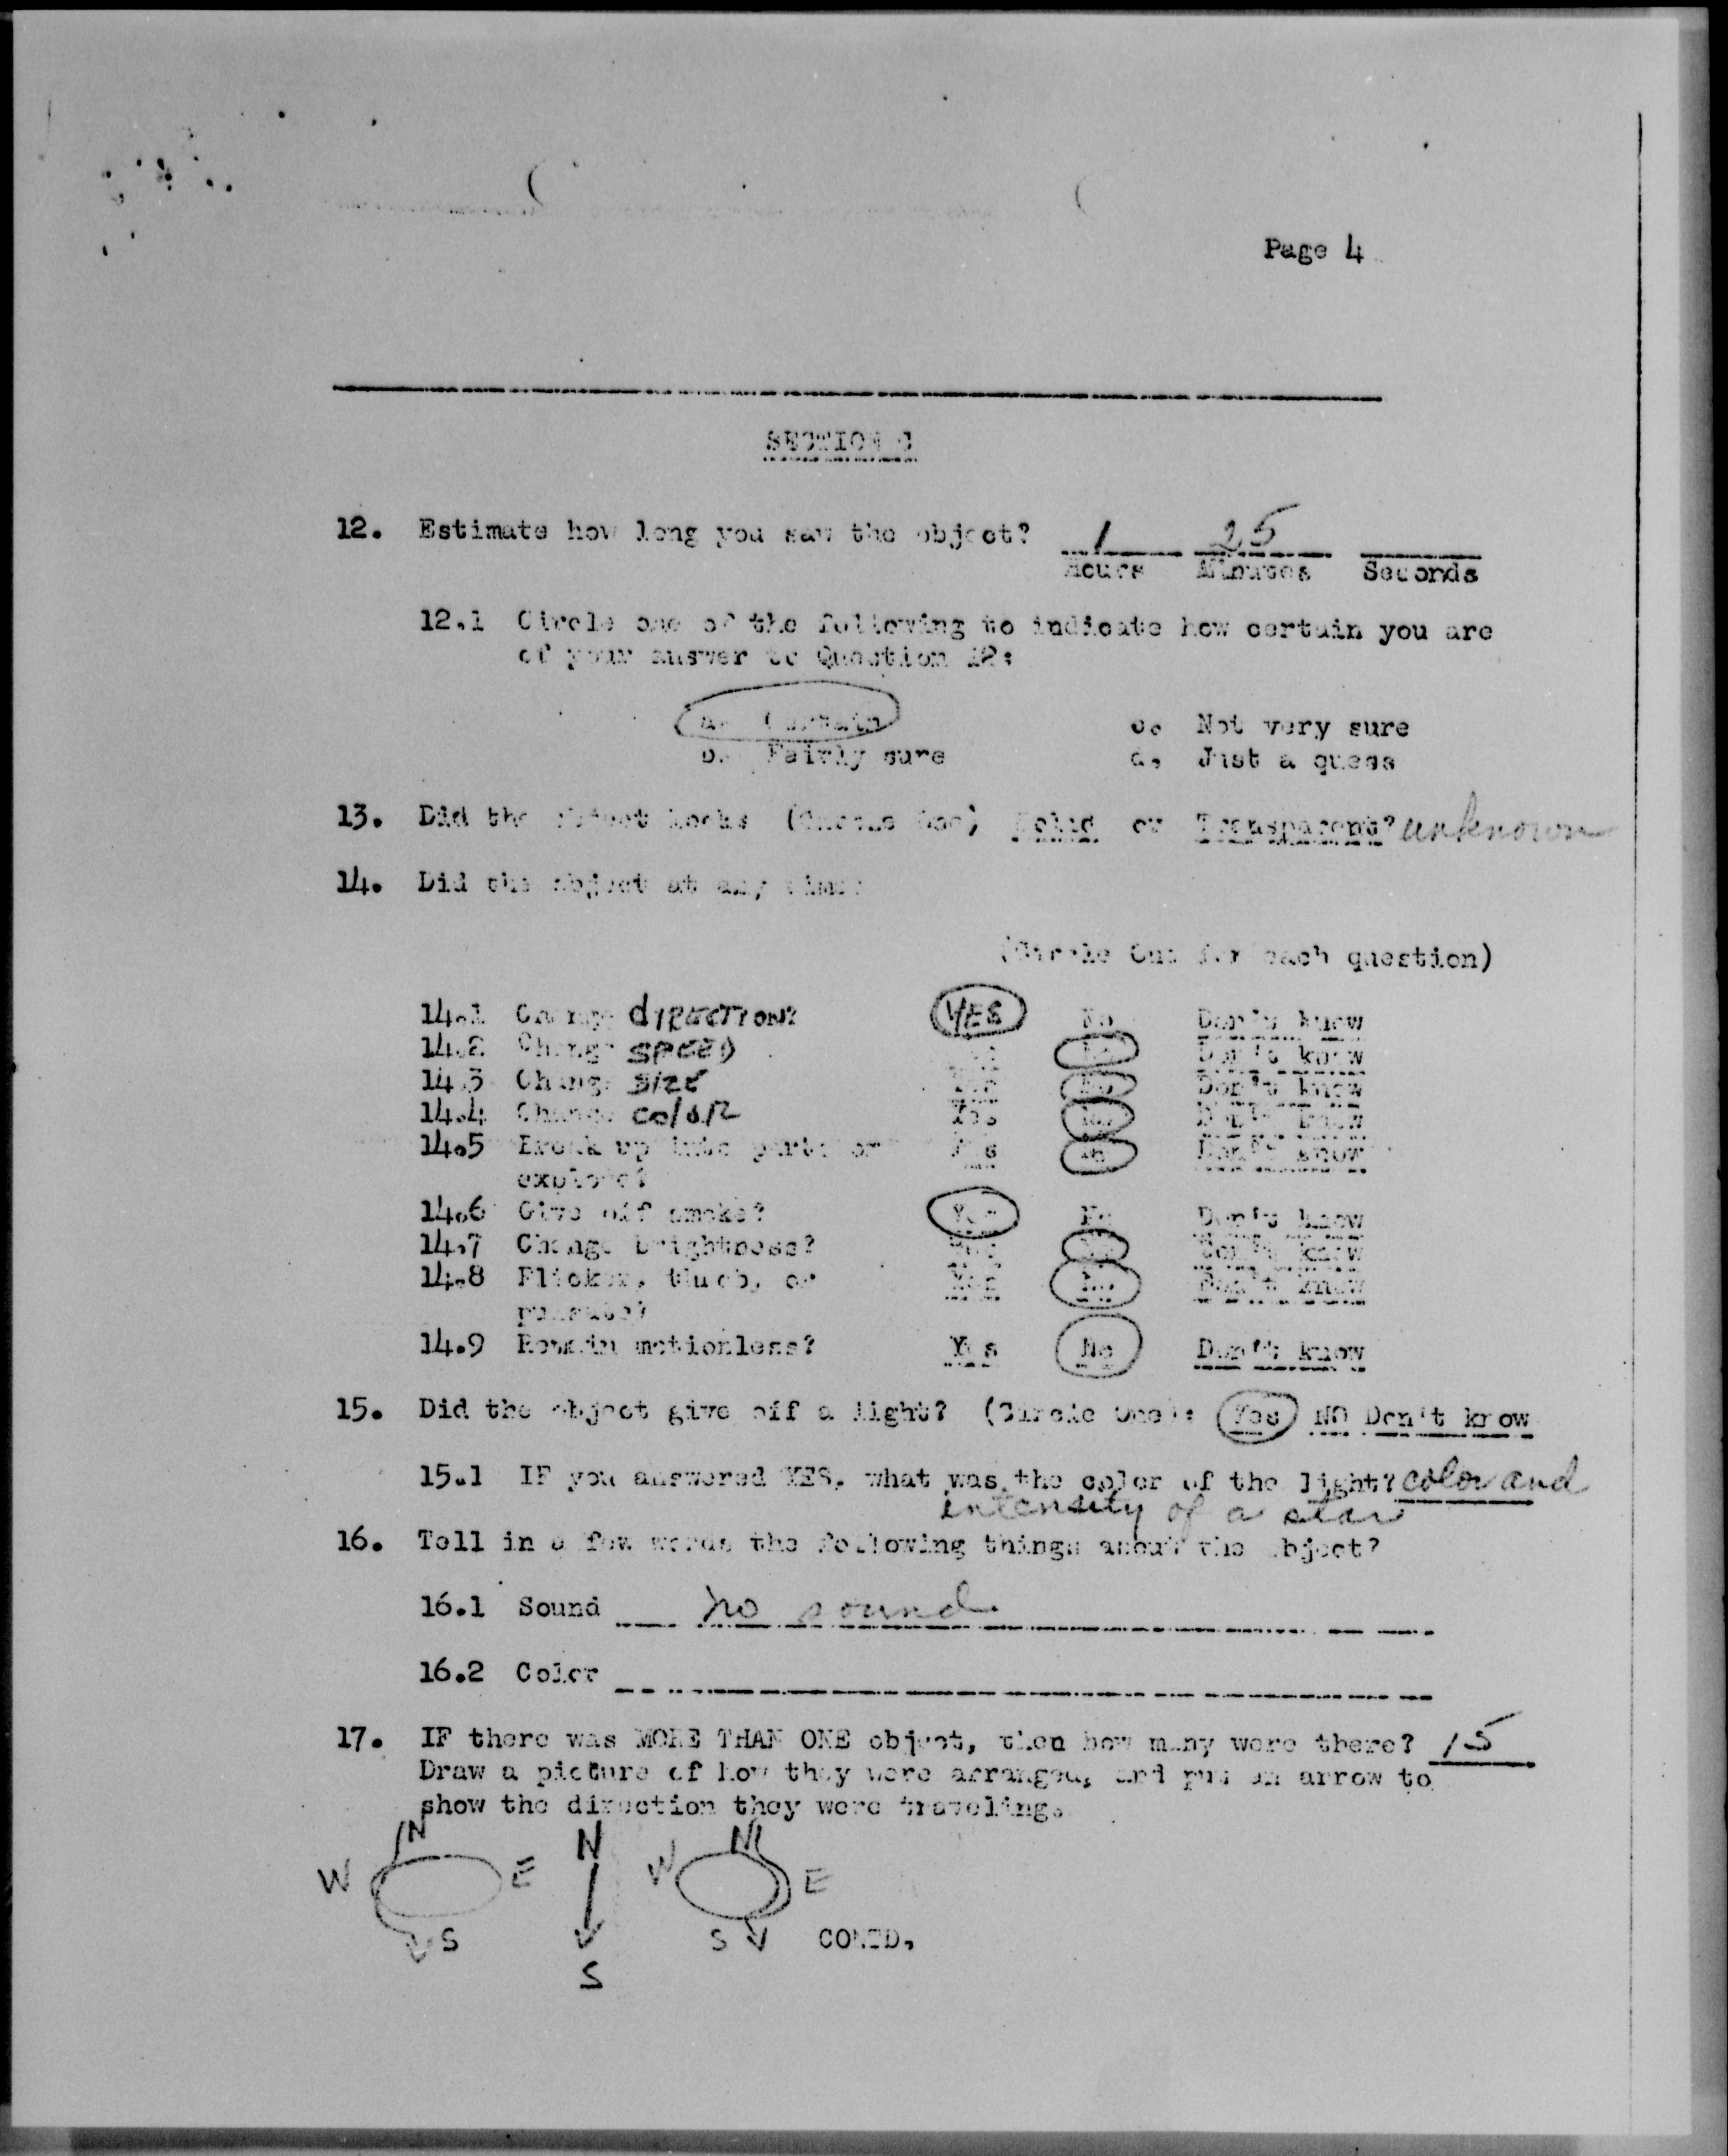 Page 4
SECTION C
12. Estimate how long you saw the object? 1 25
Hours Minutes Seconds
12.1 Circle one of the following to indicate how certain you are
of your answer to Question 12:
a. Certain c. Not very sure
b. Fairly sure d. Just a quess
13. Did the object (Circle One) Solid or Transparent? unknown
14. Did the object at any time:
(Circle One for each question)
14.1 Change dIRECTION? YES No Don't know
14.2 Change SPEED Yes No Don't know
14.3 Change SIZE Yes No Don't know
14.4 Change COlOR Yes No Don't know
14.5 Break up into parts or Yes No Don't know
explode?
14.6 Give off smoke? Yes No Don't know
14.7 Change brightness? Yes No Don't know
14.8 Flicker, throb, or Yes No Don't know
pulsate?
14.9 Remain motionless? Yes No Don't know
15. Did the object give off a light? (Circle One): Yes NO Don't know
15.1 IF you answered YES, what was the color of the light? color and
intensity of a star
16. Tell in a few words the following things about the object?
16.1 Sound no sound
16.2 Color
17. IF there was MORE THAN ONE object, then how many were there? 15
Draw a picture of how they were arranged, and put an arrow to
show the direction they were traveling.
N N N
W E W E
S S CONTD.
S